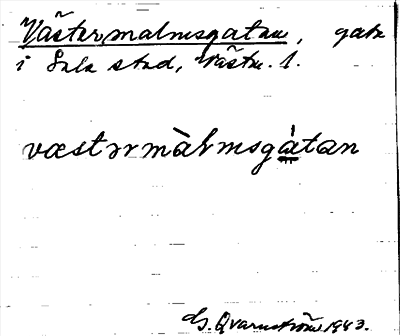 Västermalmsgatan, gata
i Sala stad, Västm. l.
væstərmàlmsgátan
G. Qvarnström 1943.